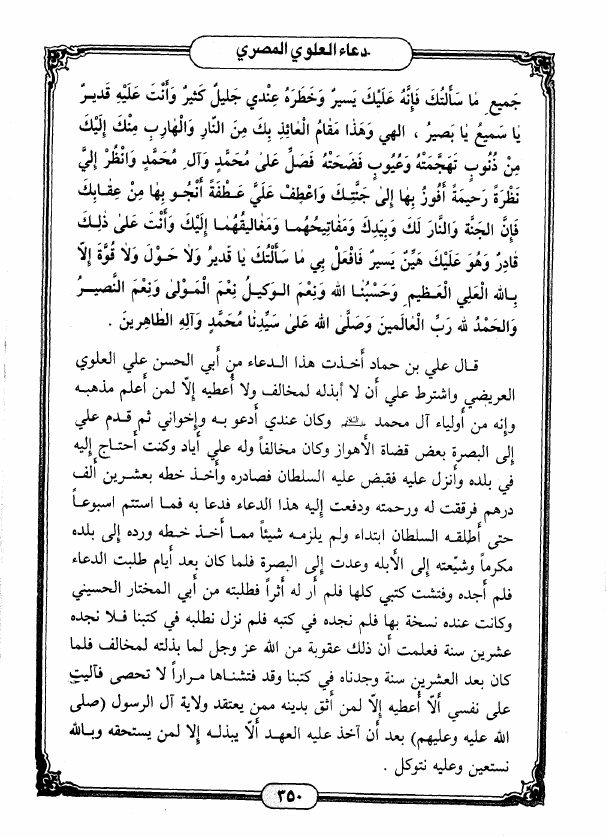 دعاء العلوي المصري
جَميع مٰا سَأَلْتُكَ فَإِنَّهُ عَلَيْكَ يَسيرٌ وَخَطَرَهُ عِنْدي جَليلٌ كَثيرٌ وَأَنْتَ عَلَيْهِ قَديرٌ
يٰا سَميعُ يٰا بَصيرُ ، الهي وَهٰذٰا مَقٰامُ الْعٰائِذِ بِكَ مِنَ النّٰارِ وَالْهٰارِبِ مِنْكَ إِلَيْكَ
مِنْ ذُنُوبٍ تَهَجَّمَتْهُ وَعُيُوبٍ فَضَحَتْهُ فَصَلِّ عَلىٰ مُحَمَّدٍ وَآلِ مُحَمَّدٍ وَانْظُرْ إِليَّ
نَظْرَةً رَحيمَةً أَفُوزُ بِهٰا إِلىٰ جَنَّتِكَ وَاعْطِفْ عَلَيَّ عَطْفَةً أَنْجُو بِهٰا مِنْ عِقٰابِكَ
فَإِنَّ الجَنَّةَ وَالنّٰارَ لَكَ وَبِيَدِكَ وَمَفٰاتيحُهُمٰا وَمَغٰاليقُهُمٰا إِلَيْكَ وَأَنْتَ عَلىٰ ذٰلِكَ
قٰادِرٌ وَهُوَ عَلَيْكَ هَيِّنٌ يَسيرٌ فَافْعَلْ بي مٰا سَأَلْتُكَ يٰا قَديرُ وَلٰا حَوْلَ وَلٰا قُوَّةَ إِلّٰا
بِاللهِ الْعَلي الْعَظيم وَحَسْبُنٰا الله وَنِعْمَ الوَكيلُ نِعْمَ الْمَوْلىٰ وَنِعْمَ النَّصيرُ
وَالحَمْدُ لله رَبِّ الْعٰالَمينَ وَصَلَّى الله عَلىٰ سَيِّدِنٰا مُحَمَّدٍ وَآلِهِ الطّٰاهِرينَ .
قال علي بن حماد أخذت هذا الدعاء من أبي الحسن علي العلوي
العريضي واشترط علي أن لا أبذله لمخالف ولا أعطيه إلّا لمن أعلم مذهبه
وإنه من أولياء آل محمد وكان عندي أدعو به وإخواني ثم قدم علي
إلى البصرة بعض قضاة الأهواز وكان مخالفاً وله علي أياد وكنت أحتاج إليه
في بلده وأنزل عليه فقبض عليه السلطان فصادره وأخذ خطه بعشرين ألف
درهم فرققت له ورحمته ودفعت إليه هذا الدعاء فدعا به فما استتم اسبوعاً
حتى أطلقه السلطان ابتداء ولم يلزمه شيئاً مما أخذ خطه ورده إلى بلده
مكرماً وشيّعته إلى الأبله وعدت إلى البصرة فلما كان بعد أيام طلبت الدعاء
فلم أجده وفتشت كتبي كلها فلم أر له أثراً فطلبته من أبي المختار الحسيني
وكانت عنده نسخة بها فلم نجده في كتبه فلم نزل نطلبه في كتبنا فلا نجده
عشرين سنة فعلمت أن ذلك عقوبة من الله عز وجل لما بذلته لمخالف فلما
كان بعد العشرين سنة وجدناه في كتبنا وقد فتشناها مراراً لا تحصى فآليت
على نفسي ألّا أعطيه إلّا لمن أثق بدينه ممن يعتقد ولاية آل الرسول (صلى
الله عليه وعليهم) بعد أن آخذ عليه العهد ألّا يبذله إلا لمن يستحقه وبالله
نستعين وعليه نتوكل .
٣٥٠